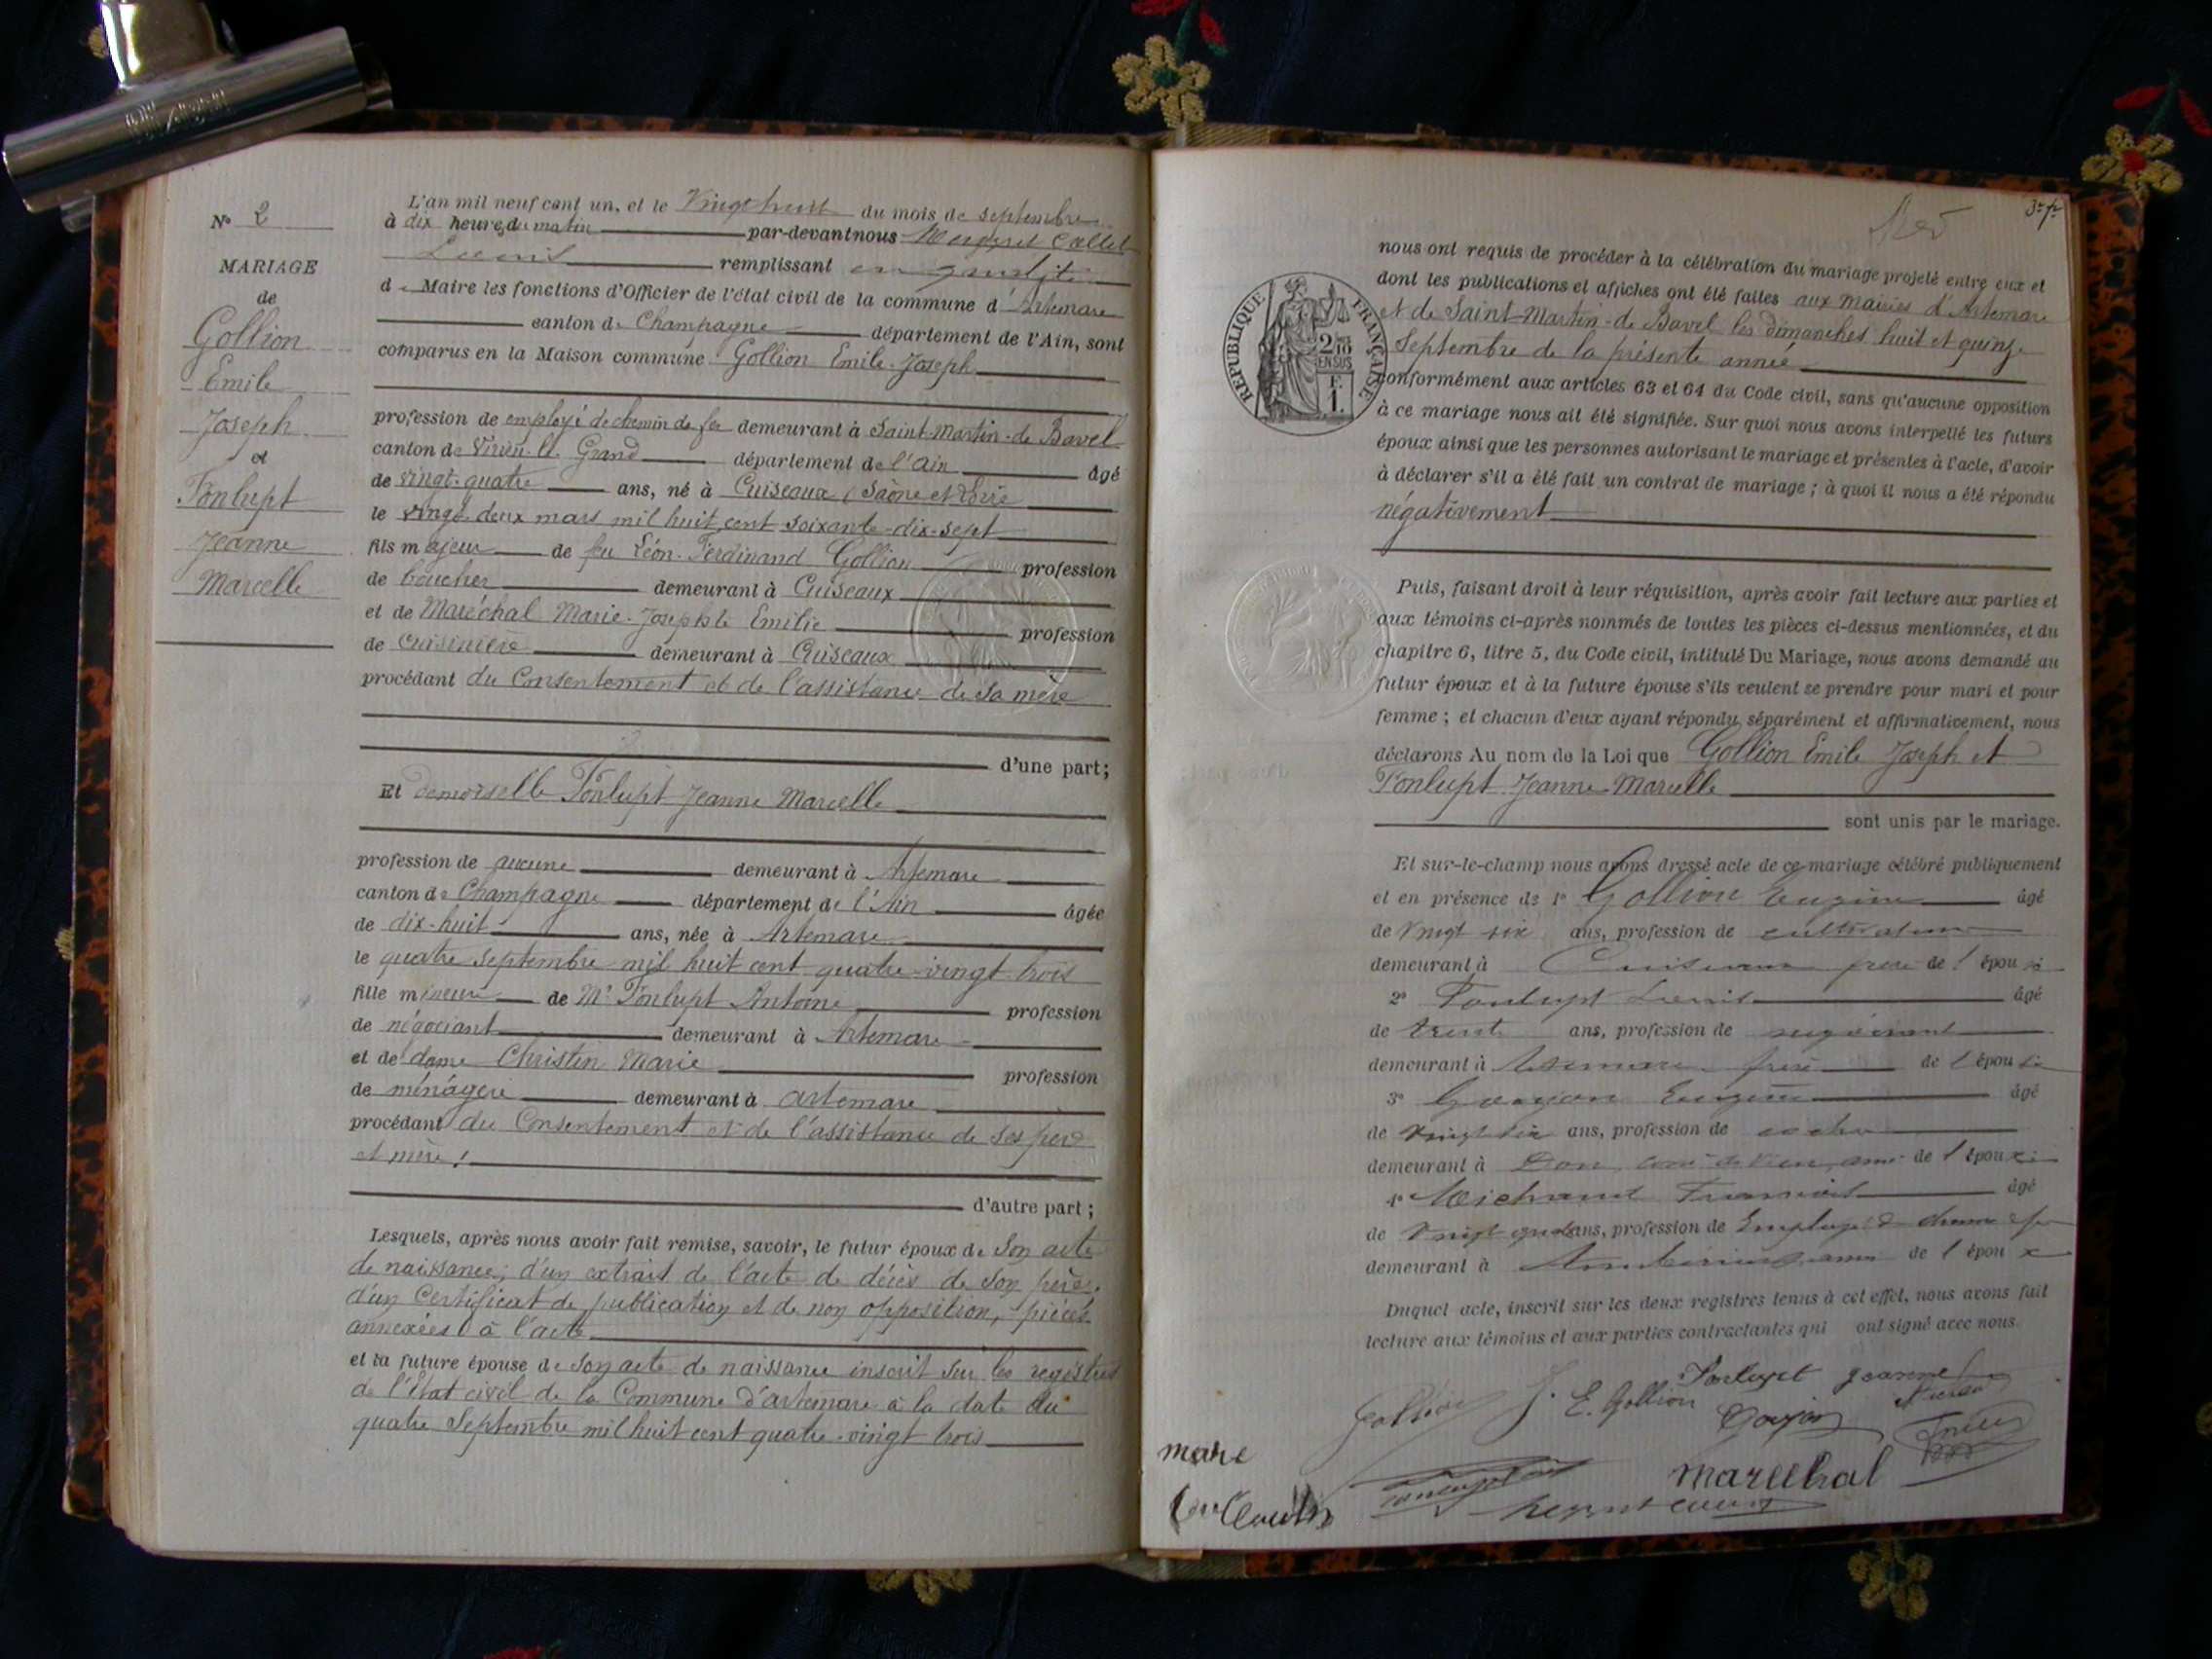 N° 2
MARIAGE
de
Gollion
Emile
Joseph
et
Fonlupt
Jeanne
Marcelle
L'an mil neuf cent un, et le Vingt huit du mois de septembre
à dix heures du matin par-devant nous
Louis remplissant en qualité
de Maire les fonctions d'Officier de l'état civil de la commune d'Artemare
canton de Champagne département de l'Ain, sont
comparus en la Maison commune Gollion Emile Joseph
profession de employé de chemin de fer demeurant à Saint-Martin-de Bavel
canton de Virieu-le-Grand département de l'Ain âgé
de vingt-quatre ans, né à Cuiseaux (Saône et Loire
le vingt-deux mars mil huit cent soixante-dix-sept
fils majeur de feu Léon-Ferdinand Gollion profession
de boucher demeurant à Cuiseaux
et de Maréchal Marie-Josephte Emilie profession
de cuisinière demeurant à Cuiseaux
procédant du Consentement et de l'assistance de sa mère
d'une part;
Et demoiselle Fonlupt Jeanne Marcelle
profession de aucune demeurant à Artemare
canton de Champagne département de l'Ain âgée
de dix-huit ans, née à Artemare
le quatre septembre mil huit cent quatre-vingt trois
fille mineure de Mr Fonlupt Antoine profession
de négociant demeurant à Artemare
et de dame Christin Marie profession
de ménagère demeurant à artemare
procédant du Consentement et de l'assistance de ses père
et mère !
d'autre part ;
Lesquels, après nous avoir fait remise, savoir, le futur époux de Son acte
de naissance; d'un extrait de l'acte de décès de Son père,
d'un Certificat de publication et de non opposition, pièces
annexées à l'acte
et la future épouse de son acte de naissance inscrit sur les registres
de l'Etat civil de la Commune d'artemare à la date du
quatre Septembre mil huit cent quatre-vingt trois
3e fe
REPUBLIQUE FRANÇAISE
2/10 EN SUS
F. 1.
nous ont requis de procéder à la célébration du mariage projeté entre eux et
dont les publications et affiches ont été faites aux mairies d'Artemare
et de Saint-Martin-de Bavel les dimanches huit et quinze
Septembre de la présente année
conformément aux articles 63 et 64 du Code civil, sans qu'aucune opposition
à ce mariage nous ait été signifiée. Sur quoi nous avons interpellé les futurs
époux ainsi que les personnes autorisant le mariage et présentes à l'acte, d'avoir
à déclarer s'il a été fait un contrat de mariage ; à quoi il nous a été répondu
négativement
Puis, faisant droit à leur réquisition, après avoir fait lecture aux parties et
aux témoins ci-après nommés de toutes les pièces ci-dessus mentionnées, et du
chapitre 6, titre 5, du Code civil, intitulé Du Mariage, nous avons demandé au
futur époux et à la future épouse s'ils veulent se prendre pour mari et pour
femme ; et chacun d'eux ayant répondu séparément et affirmativement, nous
déclarons Au nom de la Loi que Gollion Emile Joseph et
Fonlupt Jeanne-Marcelle
sont unis par le mariage.
Et sur-le-champ nous avons dressé acte de ce mariage célébré publiquement
et en présence de 1° Gollion Eugène âgé
de vingt six ans, profession de cultivateur
demeurant à Cuiseaux frère de l'époux
2° Fonlupt Louis âgé
de trente ans, profession de négociant
demeurant à Artemare frère de l'épouse
3° Goujon Eugène âgé
de vingt six ans, profession de
demeurant à Don, ami de l'époux
4° Michaud François âgé
de vingt quatre ans, profession de Employé de chemin de fer
demeurant à Ambérieux, ami de l'époux
Duquel acte, inscrit sur les deux registres tenus à cet effet, nous avons fait
lecture aux témoins et aux parties contractantes qui ont signé avec nous.
Fonlupt Jeanne
Gollion J. E. Gollion Goujon
Marechal